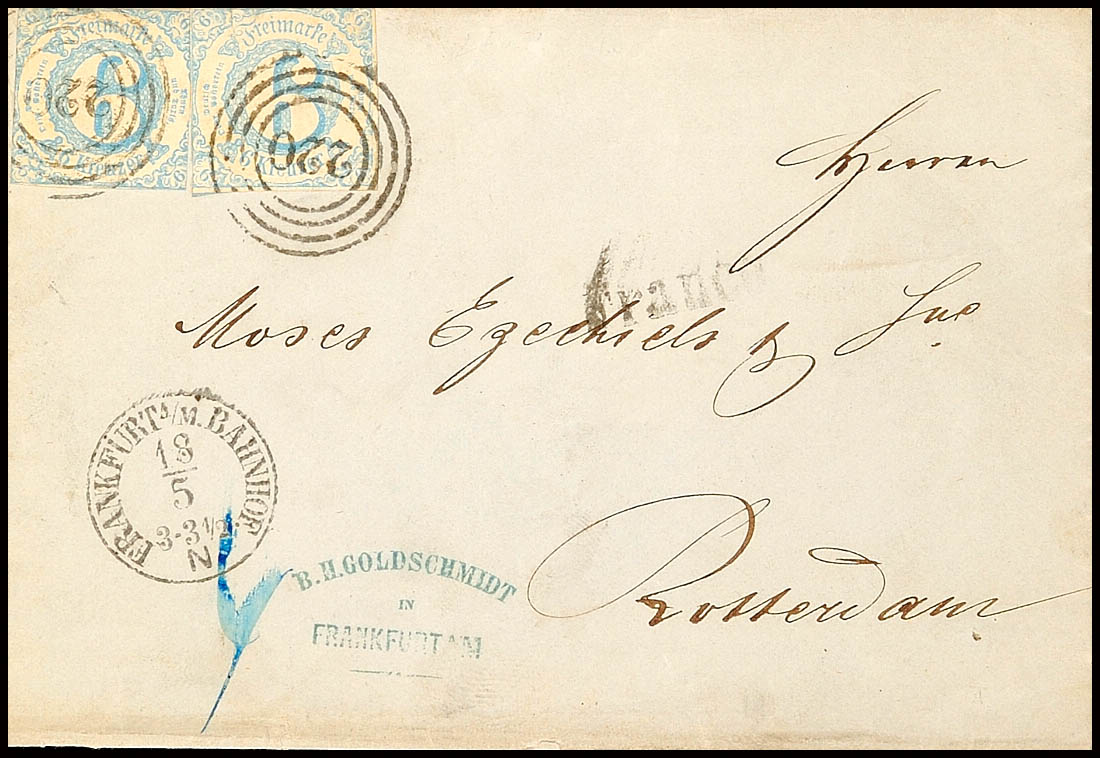 Freimarke
6
6 Kreuzer
Freimarke
6
220
Herren
Franco
Moses Ezechiels &
FRANKFURT A/M. BAHNHOF
18
5
3-3½
N
B. H. GOLDSCHMIDT
IN
FRANKFURT A/M
Rotterdam